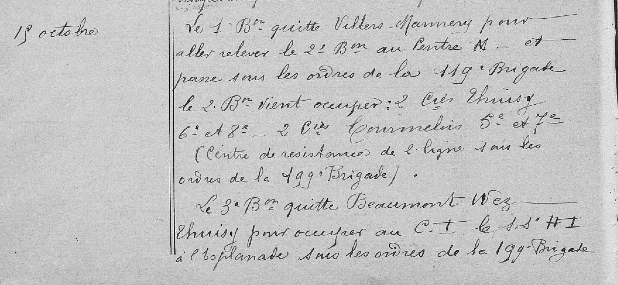 15 octobre
Le 1 Bon quitte Villers-Marmery pour
aller relever le 21 Bon au Centre M. et
passe sous les ordres de la 119e Brigade
le 2 Bon vient occuper : 2 Cies Thuisy
6e et 8e 2 Cies Courmelois 5e et 7e
(Centre de resistance de 2 ligne sous les
ordres de la 199e Brigade).
Le 3e Bon quitte Beaumont Wez
Thuisy pour occuper au C. I le S.Sr H I
à l'Esplanade sous les ordres de la 199e Brigade